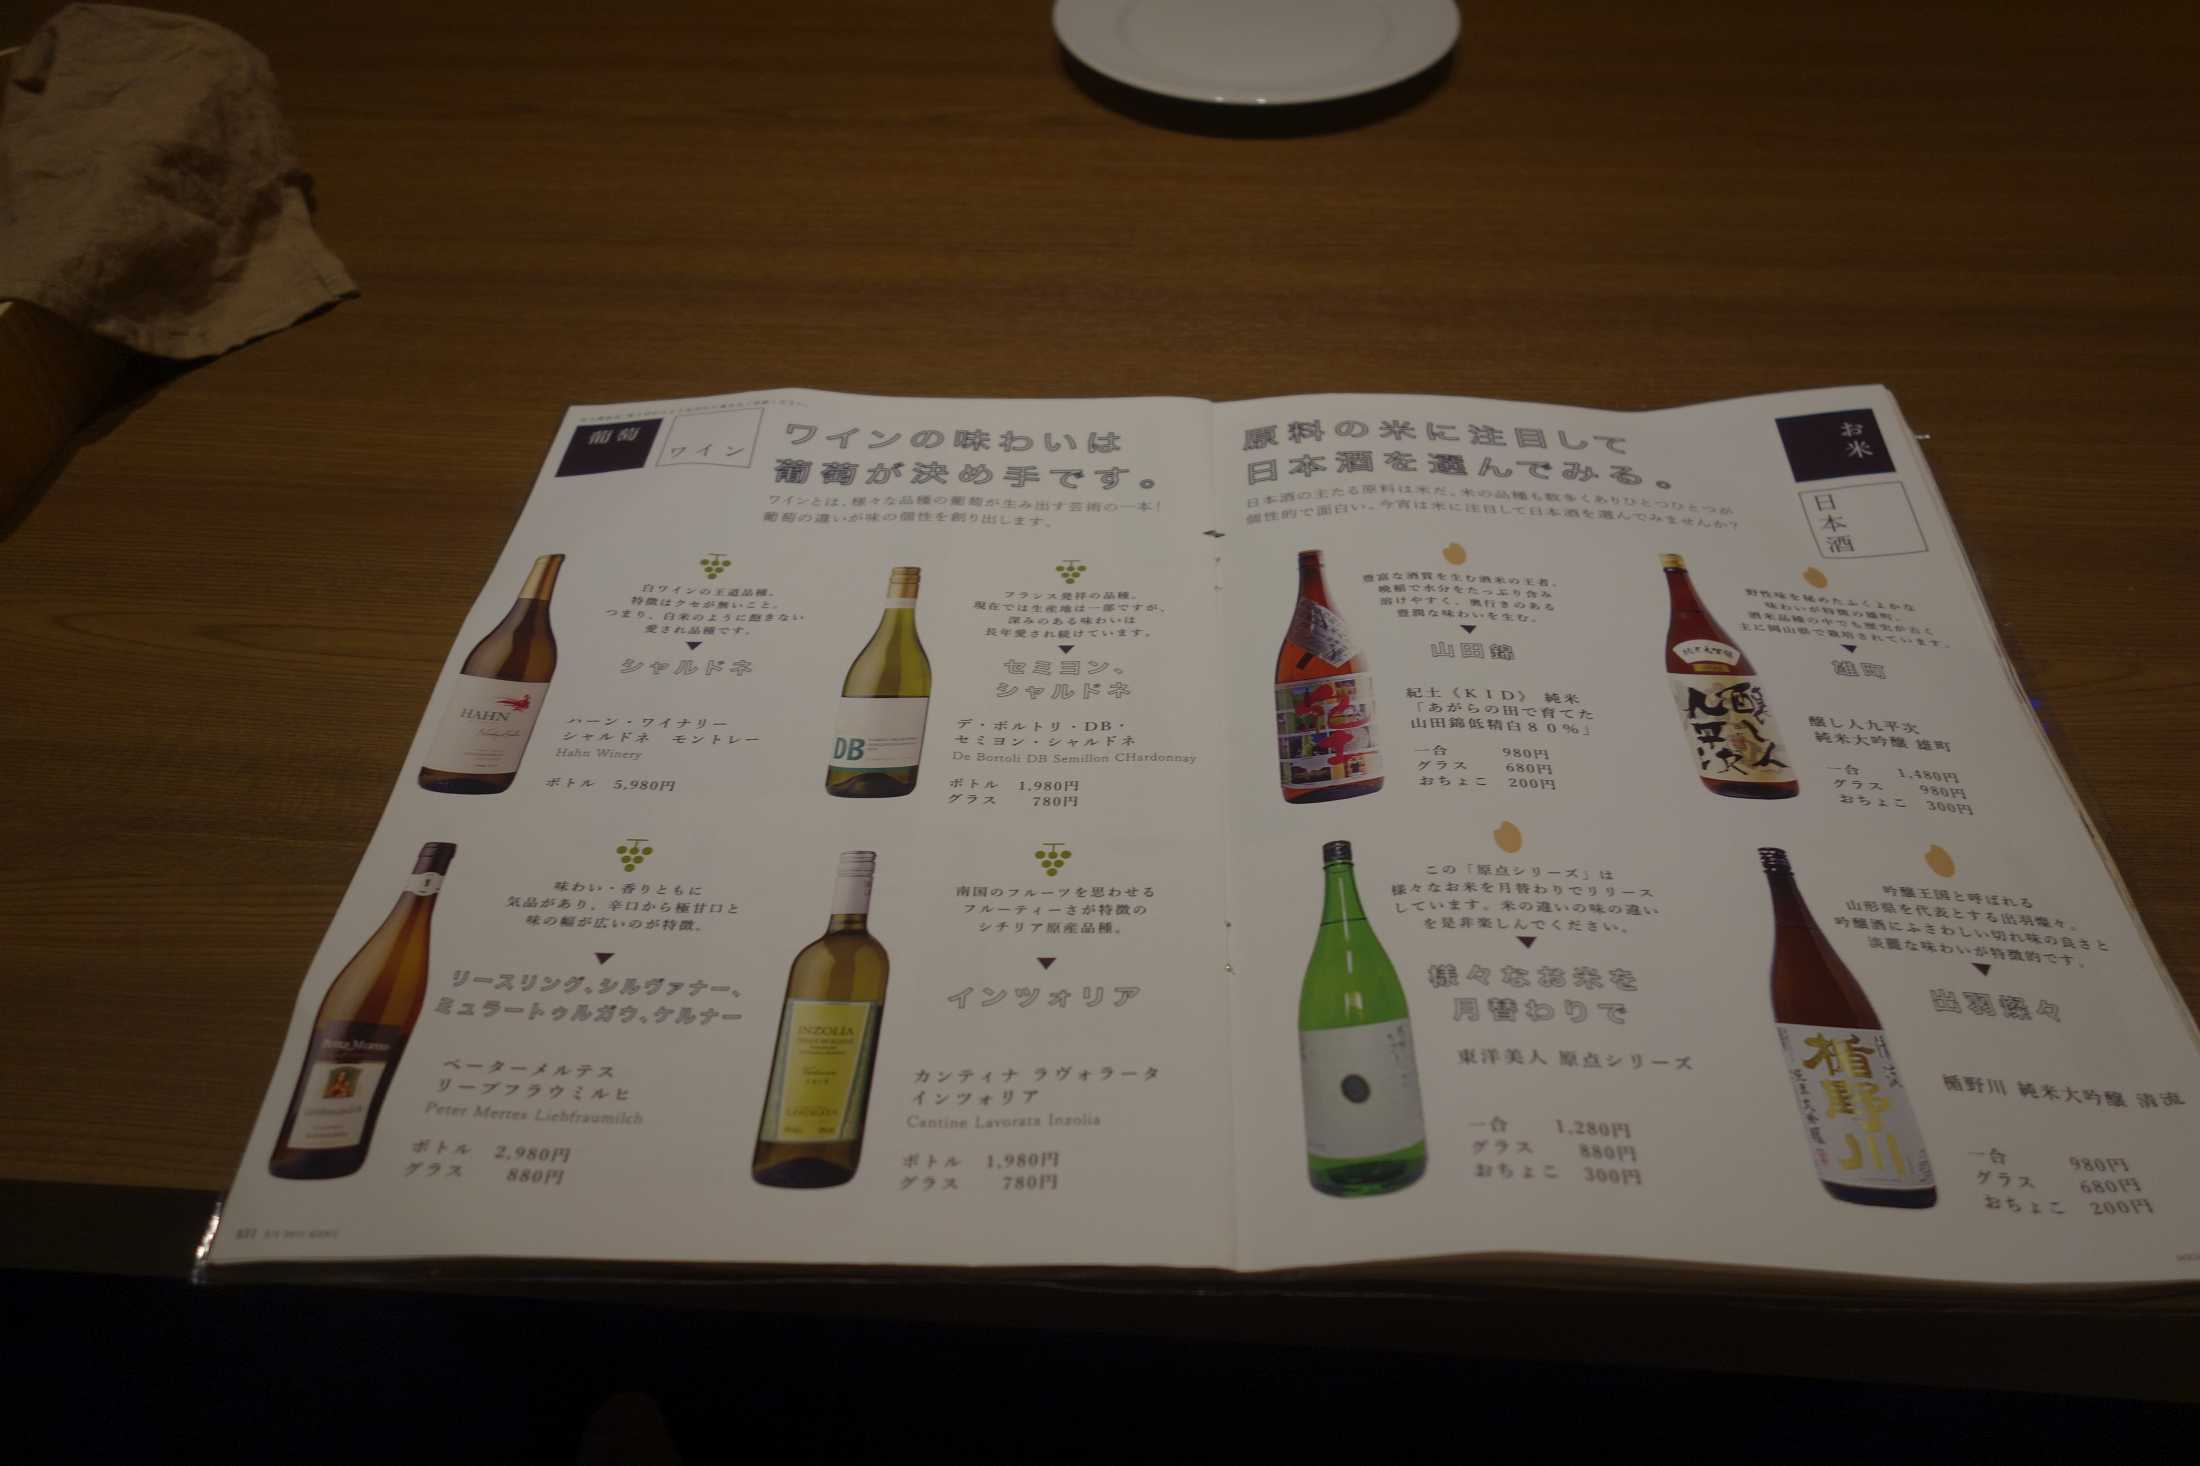 葡萄
ワイン
ワインの味わいは
葡萄が決め手です。
ワインとは、様々な品種の葡萄が生み出す芸術の一本!
葡萄の違いが味の個性を創り出します。
白ワインの王道品種。
特徴はクセが無いこと。
つまり、白米のように飽きない
愛され品種です。
シャルドネ
HAHN
ハーン・ワイナリー
シャルドネ モントレー
Hahn Winery
ボトル 5,980円
フランス発祥の品種。
現在では生産地は一部ですが、
深みのある味わいは
長年愛され続けています。
セミヨン、
シャルドネ
DB
デ・ボルトリ・DB・
セミヨン・シャルドネ
De Bortoli DB Semillon CHardonnay
ボトル 1,980円
グラス 780円
味わい・香りともに
気品があり、辛口から極甘口と
味の幅が広いのが特徴。
リースリング、シルヴァナー、
ミュラートゥルガウ、ケルナー
Peter Mertes
ペーターメルテス
リープフラウミルヒ
Peter Mertes Liebfraumilch
ボトル 2,980円
グラス 880円
南国のフルーツを思わせる
フルーティーさが特徴の
シチリア原産品種。
インツォリア
INZOLIA
LAVORATA
カンティナ ラヴォラータ
インツォリア
Cantine Lavorata Inzolia
ボトル 1,980円
グラス 780円
お米
日本酒
原料の米に注目して
日本酒を選んでみる。
日本酒の主たる原料は米だ。米の品種も数多くありひとつひとつが
個性的で面白い。今宵は米に注目して日本酒を選んでみませんか?
豊富な酒質を生む酒米の王者。
晩稲で水分をたっぷり含み
溶けやすく、奥行きのある
豊潤な味わいを生む。
山田錦
紀土
紀土《KID》 純米
「あがらの田で育てた
山田錦低精白80%」
一合 980円
グラス 680円
おちょこ 200円
野性味を秘めたふくよかな
味わいが特徴の雄町。
酒米品種の中でも歴史が古く
主に岡山県で栽培されています。
雄町
醸し人九平次
醸し人九平次
純米大吟醸 雄町
一合 1,480円
グラス 980円
おちょこ 300円
この「原点シリーズ」は
様々なお米を月替わりでリリース
しています。米の違いの味の違い
を是非楽しんでください。
様々なお米を
月替わりで
東洋美人 原点シリーズ
一合 1,280円
グラス 880円
おちょこ 300円
吟醸王国と呼ばれる
山形県を代表とする出羽燦々。
吟醸酒にふさわしい切れ味の良さと
淡麗な味わいが特徴的です。
出羽燦々
楯野川
楯野川 純米大吟醸 清流
一合 980円
グラス 680円
おちょこ 200円